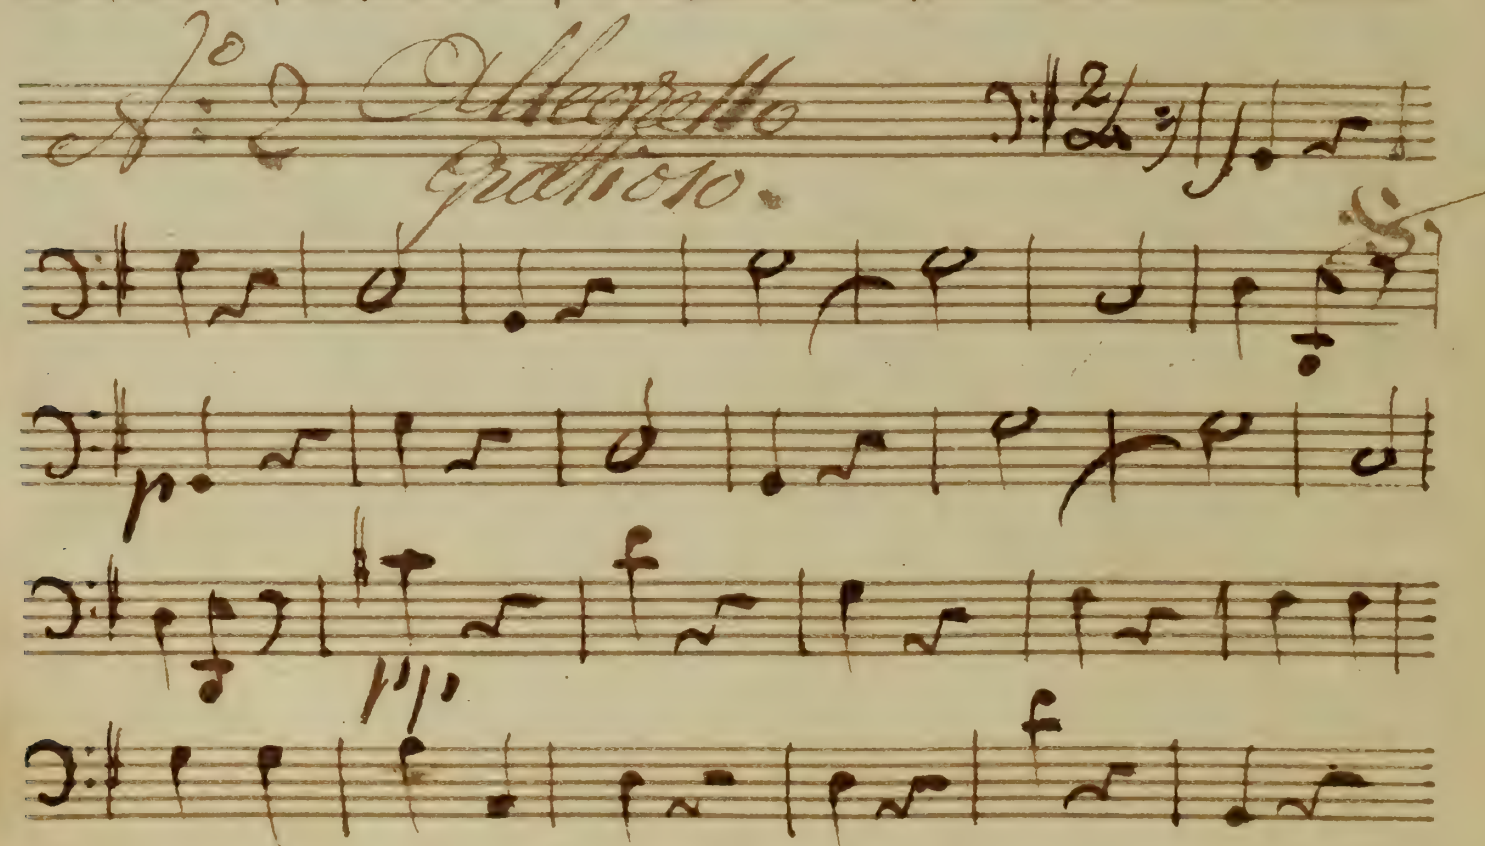 No: 2 Allegretto
gratioso.
2/4 f
p
pp